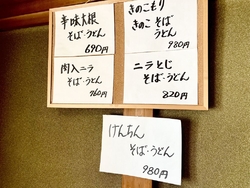 辛味大根
そば・うどん
690円
きのこもり
きのこ そば
うどん
980円
肉入ニラ
そば・うどん
960円
ニラとじ
そば・うどん
820円
けんちん
そば・うどん
980円